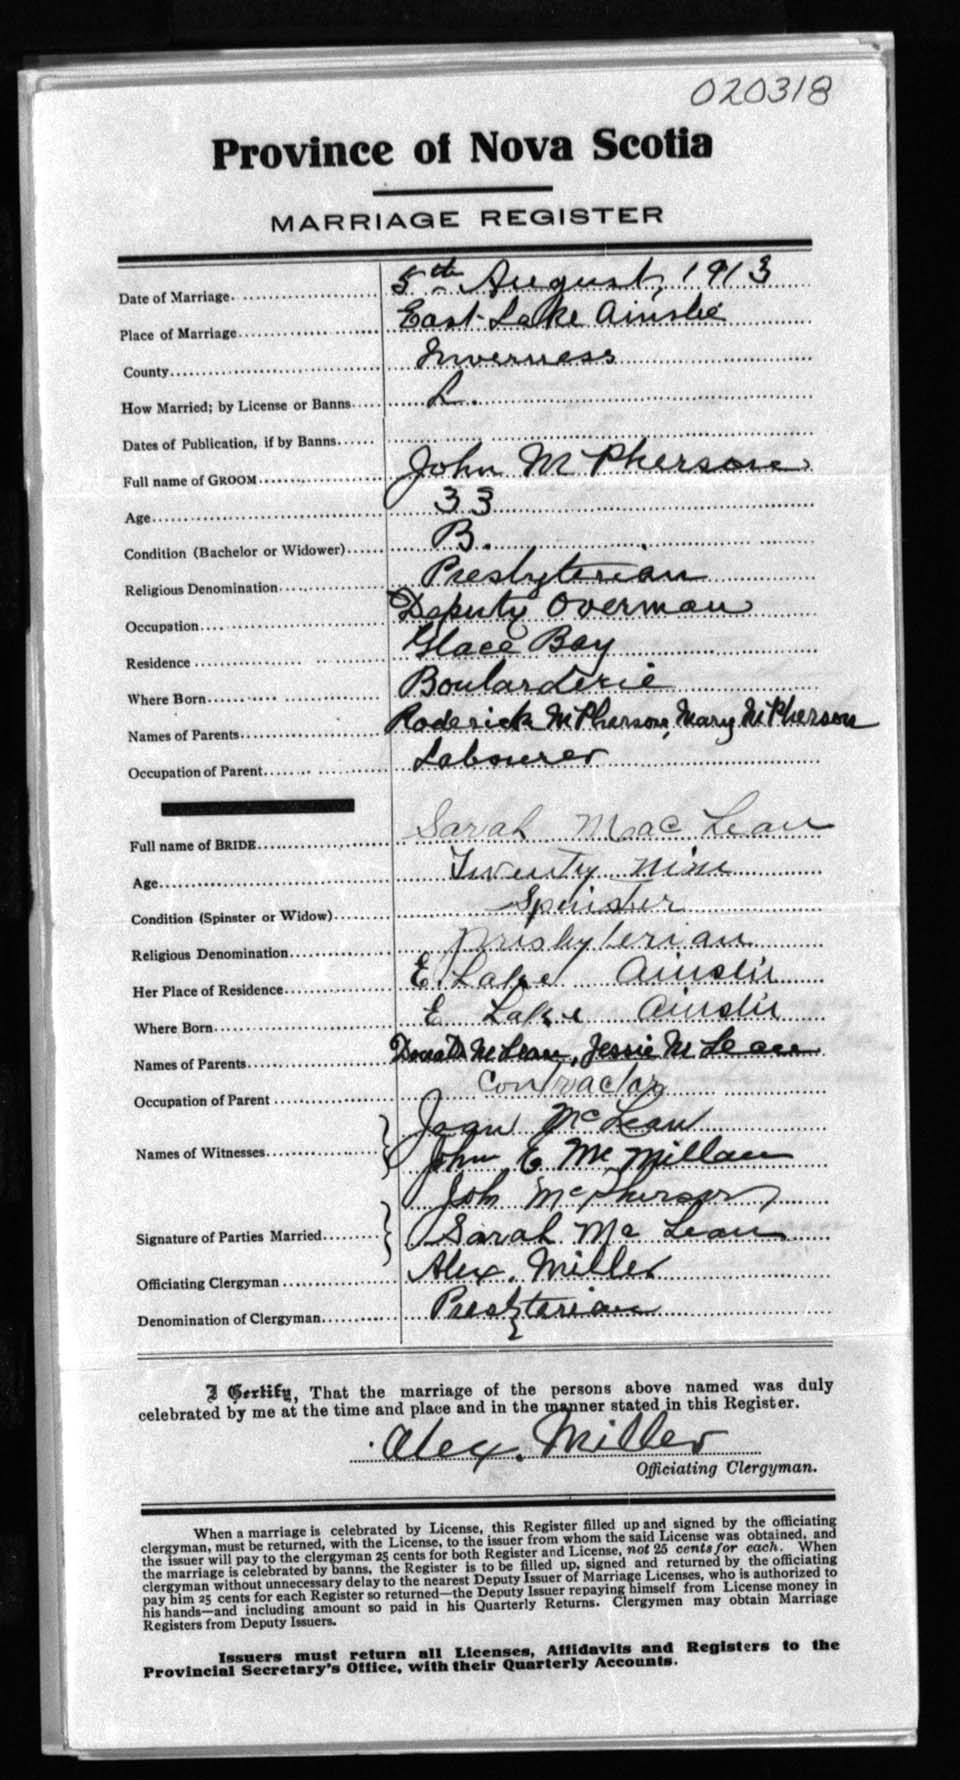 020318
Province of Nova Scotia
MARRIAGE REGISTER
Date of Marriage 5th August, 1913
Place of Marriage East Lake Ainslie
County Inverness
How Married; by License or Banns L.
Dates of Publication, if by Banns
Full name of GROOM John McPherson
Age 33
Condition (Bachelor or Widower) B.
Religious Denomination Presbyterian
Occupation Deputy Overman
Residence Glace Bay
Where Born Boularderie
Names of Parents Roderick McPherson, Mary McPherson
Occupation of Parent Labourer
Full name of BRIDE Sarah MacLean
Age Twenty nine
Condition (Spinster or Widow) Spinster
Religious Denomination Presbyterian
Her Place of Residence E. Lake Ainslie
Where Born E Lake Ainslie
Names of Parents Donald McLean, Jessie McLean
Occupation of Parent Contractor
Names of Witnesses McLean
John E McMillan
Signature of Parties Married Joh McPherson
Sarah McLean
Officiating Clergyman Alex. Miller
Denomination of Clergyman Presbyterian
I Certify, That the marriage of the persons above named was duly
celebrated by me at the time and place and in the manner stated in this Register.
Alex. Miller
Officiating Clergyman.
When a marriage is celebrated by License, this Register filled up and signed by the officiating
clergyman, must be returned, with the License, to the issuer from whom the said License was obtained, and
the issuer will pay to the clergyman 25 cents for both Register and License, not 25 cents for each. When
the marriage is celebrated by banns, the Register is to be filled up, signed and returned by the officiating
clergyman without unnecessary delay to the nearest Deputy Issuer of Marriage Licenses, who is authorized to
pay him 25 cents for each Register so returned—the Deputy Issuer repaying himself from License money in
his hands—and including amount so paid in his Quarterly Returns. Clergymen may obtain Marriage
Registers from Deputy Issuers.
Issuers must return all Licenses, Affidavits and Registers to the
Provincial Secretary's Office, with their Quarterly Accounts.